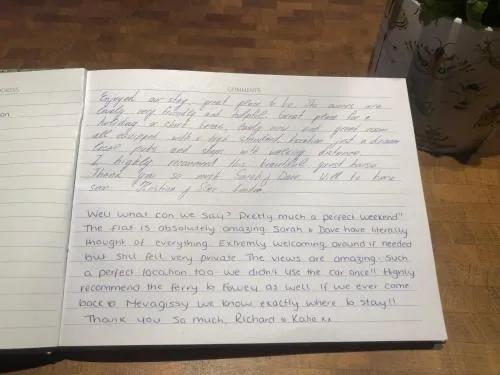 DDRESS
on
COMMENTS
Enjoyed our stay, great place to be. The owners are
lovely, very friendly and helpful. Great place for a
holiday or short break, lovely and great room
all equipped with a high standard. Location just a dream
local pubs and shops with walking distance.
I highly recommend this beautiful guest house.
Thank you so much Sarah & Dave. Will be
soon.
Well what can we say? Pretty much a perfect weekend!!
The flat is absolutely amazing. Sarah & Dave have literally
thought of everything. Extremly welcoming, around if needed
but still felt very private. The views are amazing. Such
a perfect location too. We didn't use the car once!! Highly
recommend the ferry to Fowey as well. If we ever come
back to Mevagissy we know exactly where to stay!!
Thank you so much, Richard & Katie xx